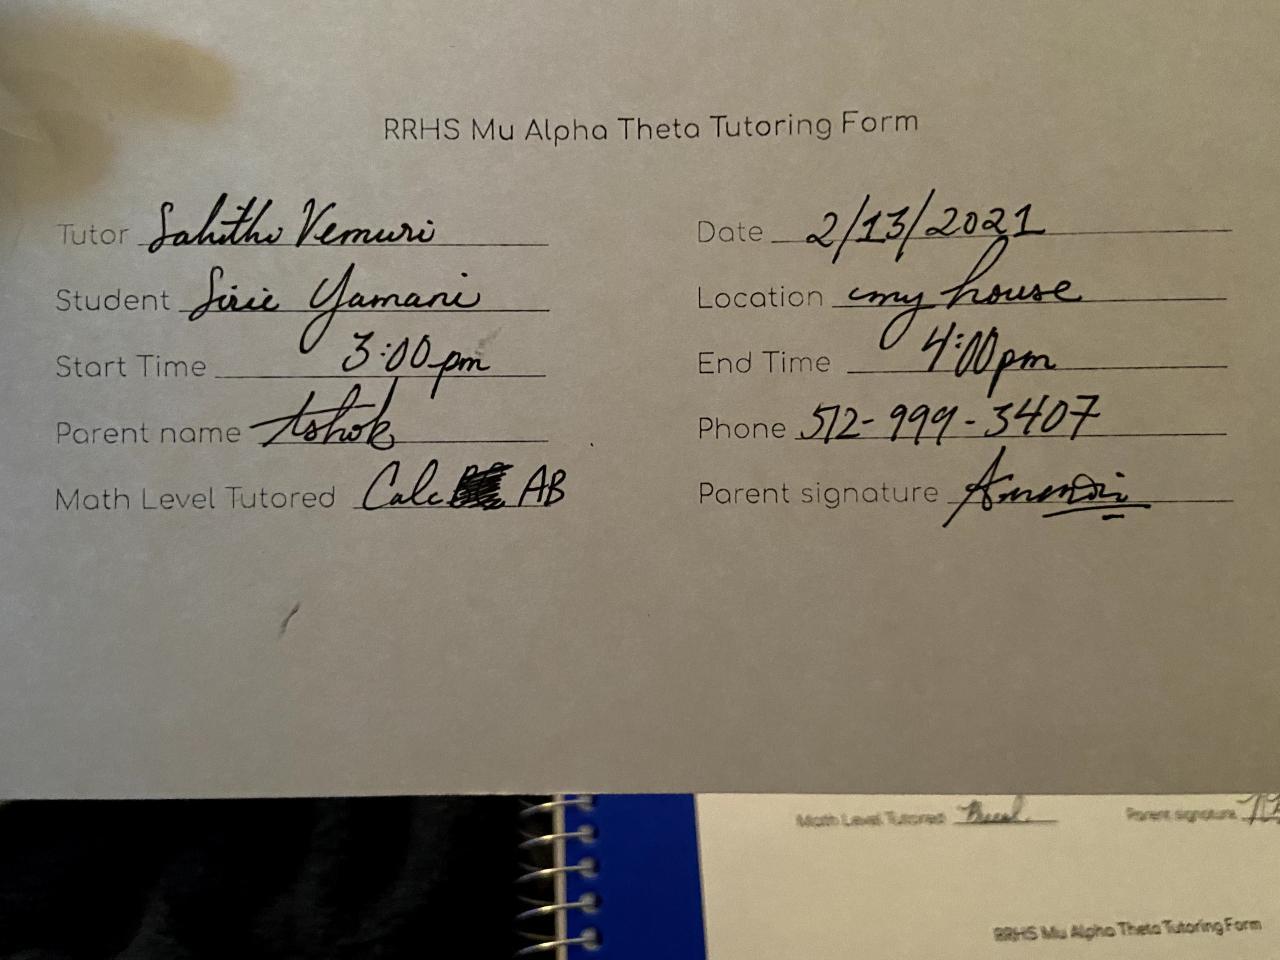 RRHS Mu Alpha Theta Tutoring Form
Tutor Sahithi Vemuri Date 2/13/2021
Student Sirie Yamani Location my house
Start Time 3:00 pm End Time 4:00pm
Parent name Ashok Phone 512-999-3407
Math Level Tutored Calc AB Parent signature
Math Level Tutored Parent signature
RRHS Mu Alpha Theta Tutoring Form